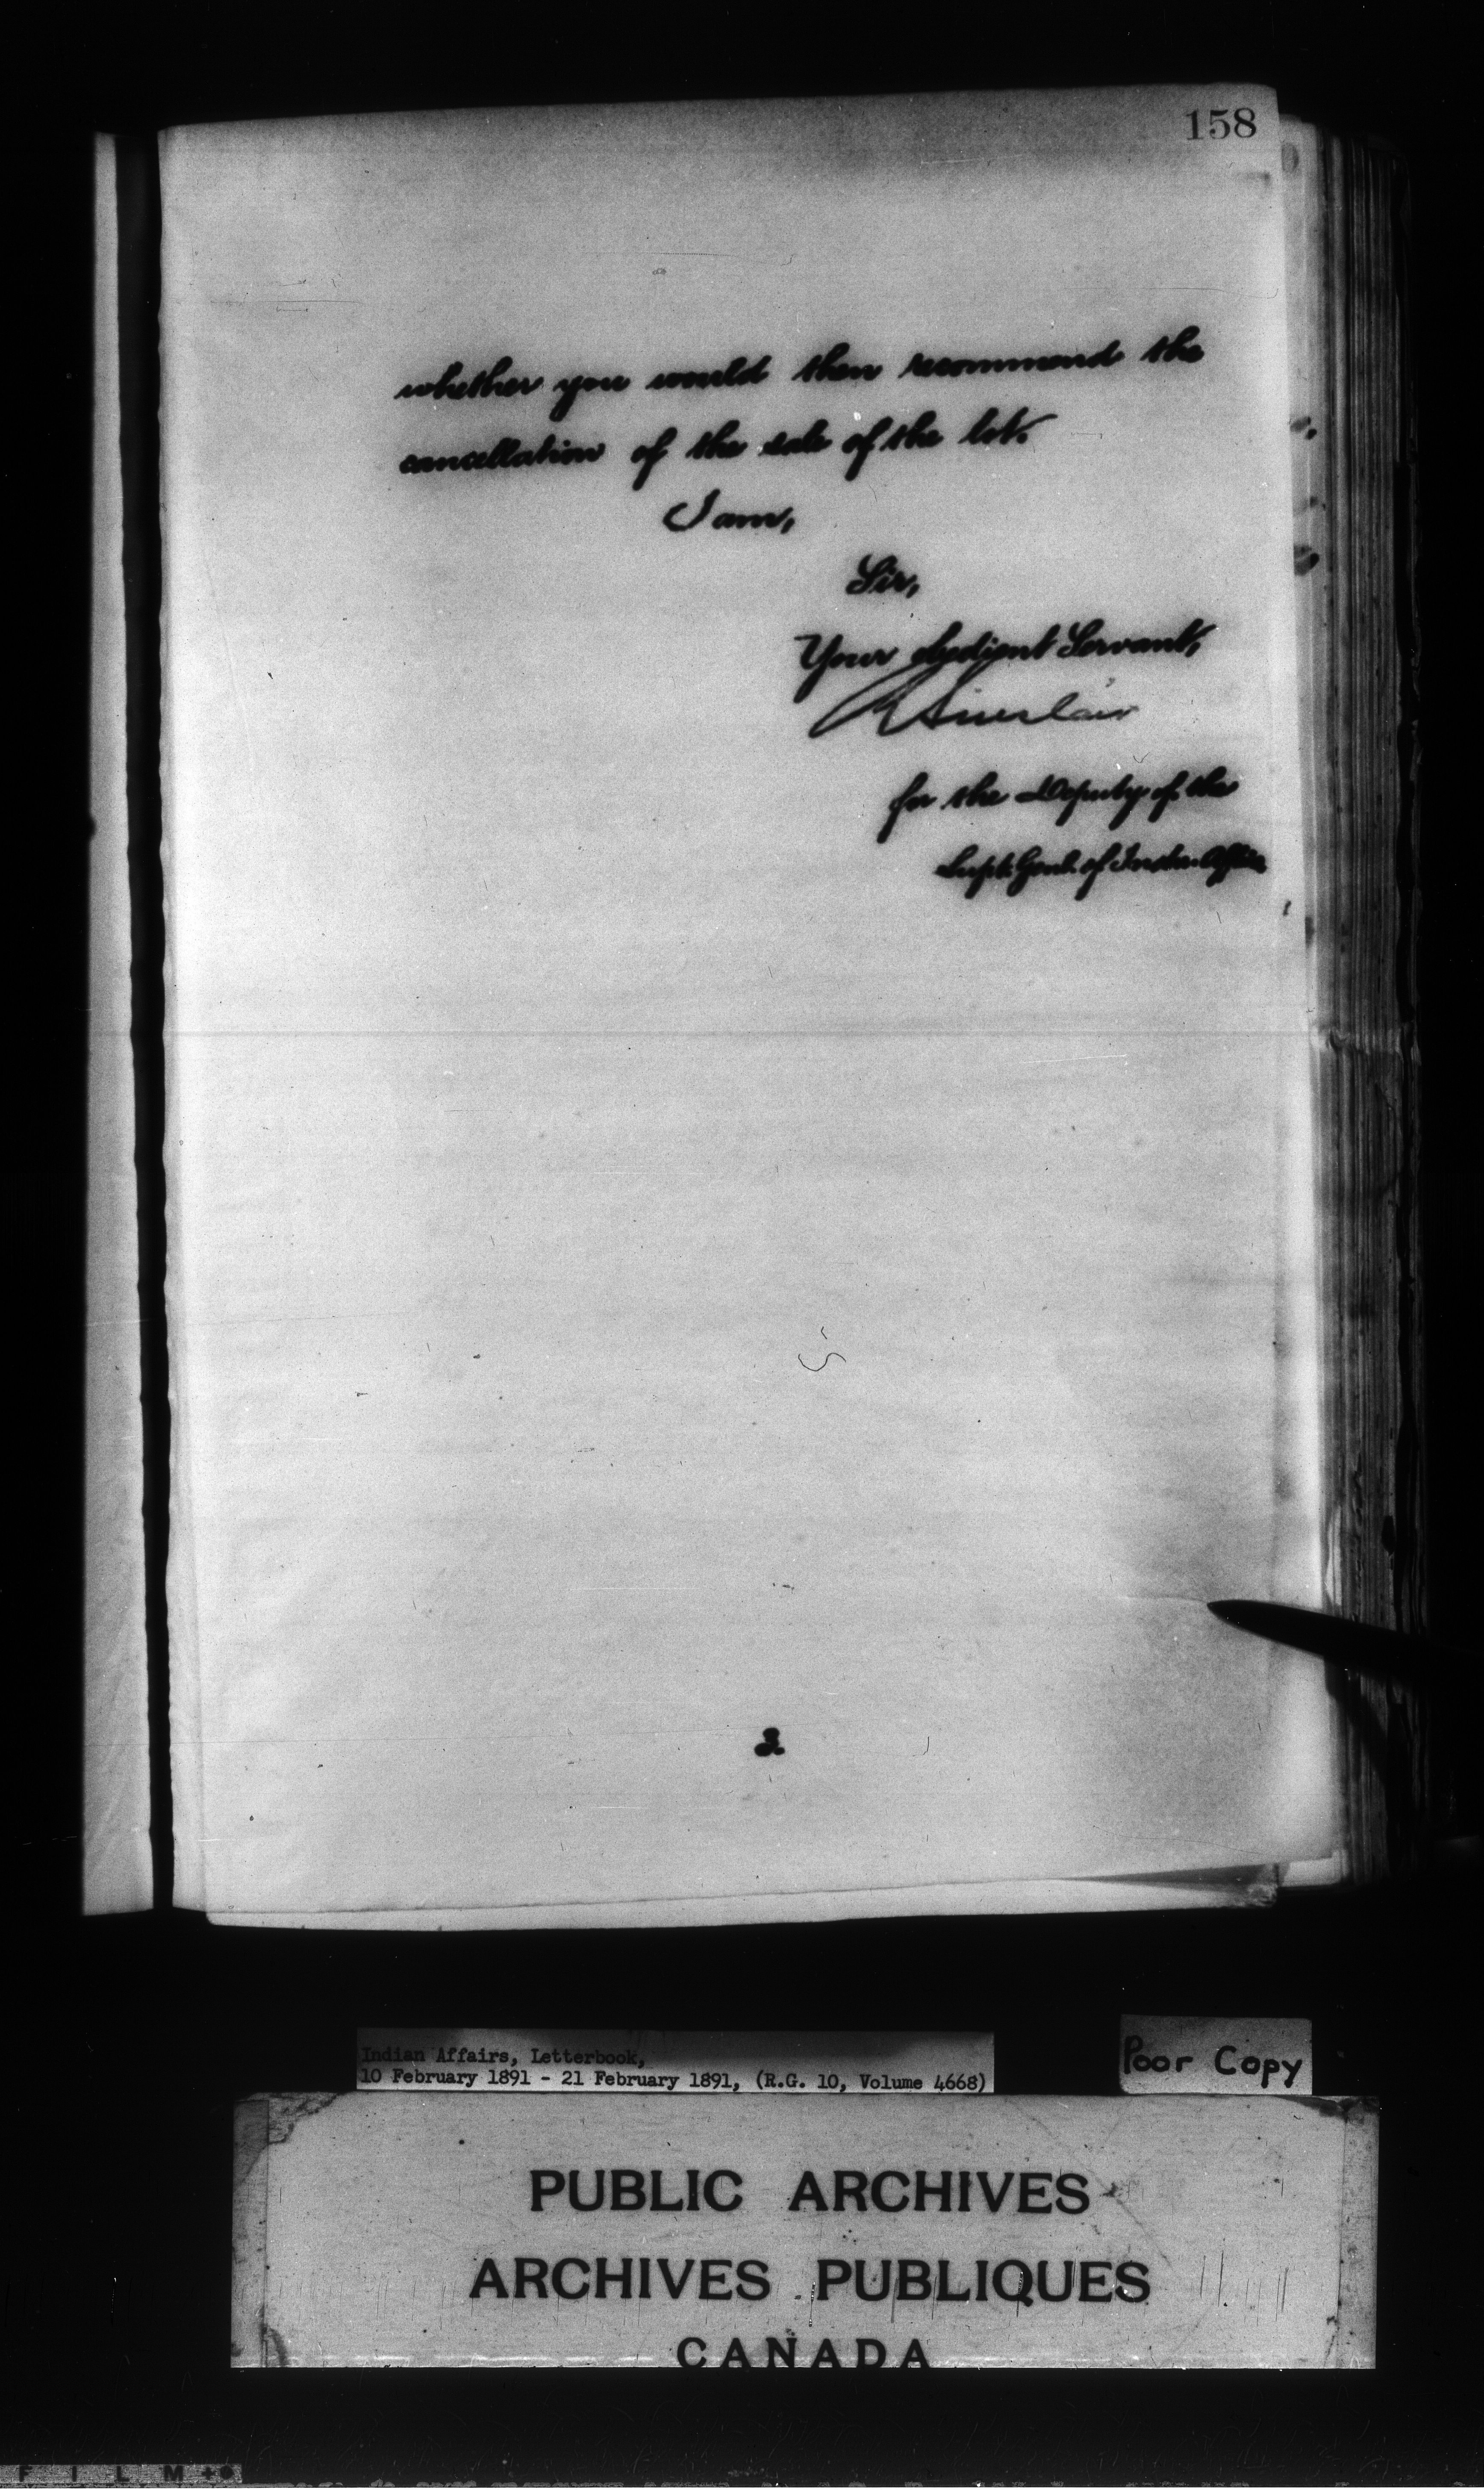 158
whether you would then recommend the
cancellation of the sale of the lot.
I am,
Sir,
Your obedient Servant,
R Sinclair
for the Deputy of the
Supt. Genl. of Indian Affairs
2.
Indian Affairs, Letterbook,
10 February 1891 - 21 February 1891, (R.G. 10, Volume 4668)
Poor Copy
PUBLIC ARCHIVES
ARCHIVES PUBLIQUES
CANADA
FILM